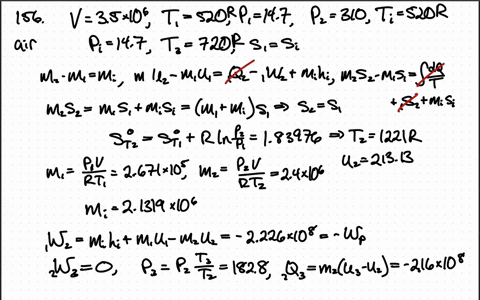 156. V = 3.5×10⁶, T₁ = 520R, P₁ = 14.7, P₂ = 310, Tᵢ = 520R
air Pᵢ = 14.7, T₃ = 720R, S₁ = Sᵢ
m₂ - m₁ = mᵢ, m₂u₂ - m₁u₁ = Q₂ - ₁W₂ + mᵢhᵢ, m₂S₂ - m₁S₁ = ∫dQ/T
m₂S₂ = m₁S₁ + mᵢSᵢ = (m₁ + mᵢ)S₁ ⇒ S₂ = S₁ + S₂ + mᵢSᵢ
S°T₂ = S°T₁ + R ln P₂/P₁ = 1.83976 ⇒ T₂ = 1221R
m₁ = P₁V/RT₁ = 2.671×10⁵, m₂ = P₂V/RT₂ = 2.4×10⁶ u₂ = 213.13
mᵢ = 2.1319×10⁶
₁W₂ = mᵢhᵢ + m₁u₁ - m₂u₂ = -2.226×10⁸ = -Wp
₂W₃ = 0, P₃ = P₂ T₃/T₂ = 182.8, ₂Q₃ = m₂(u₃ - u₂) = -2.16×10⁸